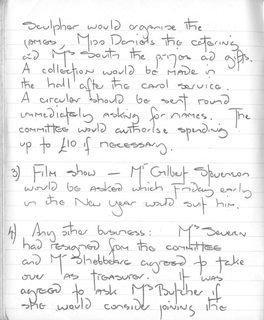 Sculpher would organise the
games. Miss Daniels the catering
and Mrs South the prizes and gifts.
A collection would be made in
the hall after the carol service.
A circular should be sent round
immediately asking for names. The
committee would authorise spending
up to £10 if necessary.
3) Film show – Mr Gilbert Stevenson
would be asked which Friday early
in the New Year would suit him.
4) Any other business: Mrs Severn
had resigned from the committee
and Mr Stebbeare agreed to take
over as treasurer. It was
agreed to ask Mrs Butcher if
she would consider joining the